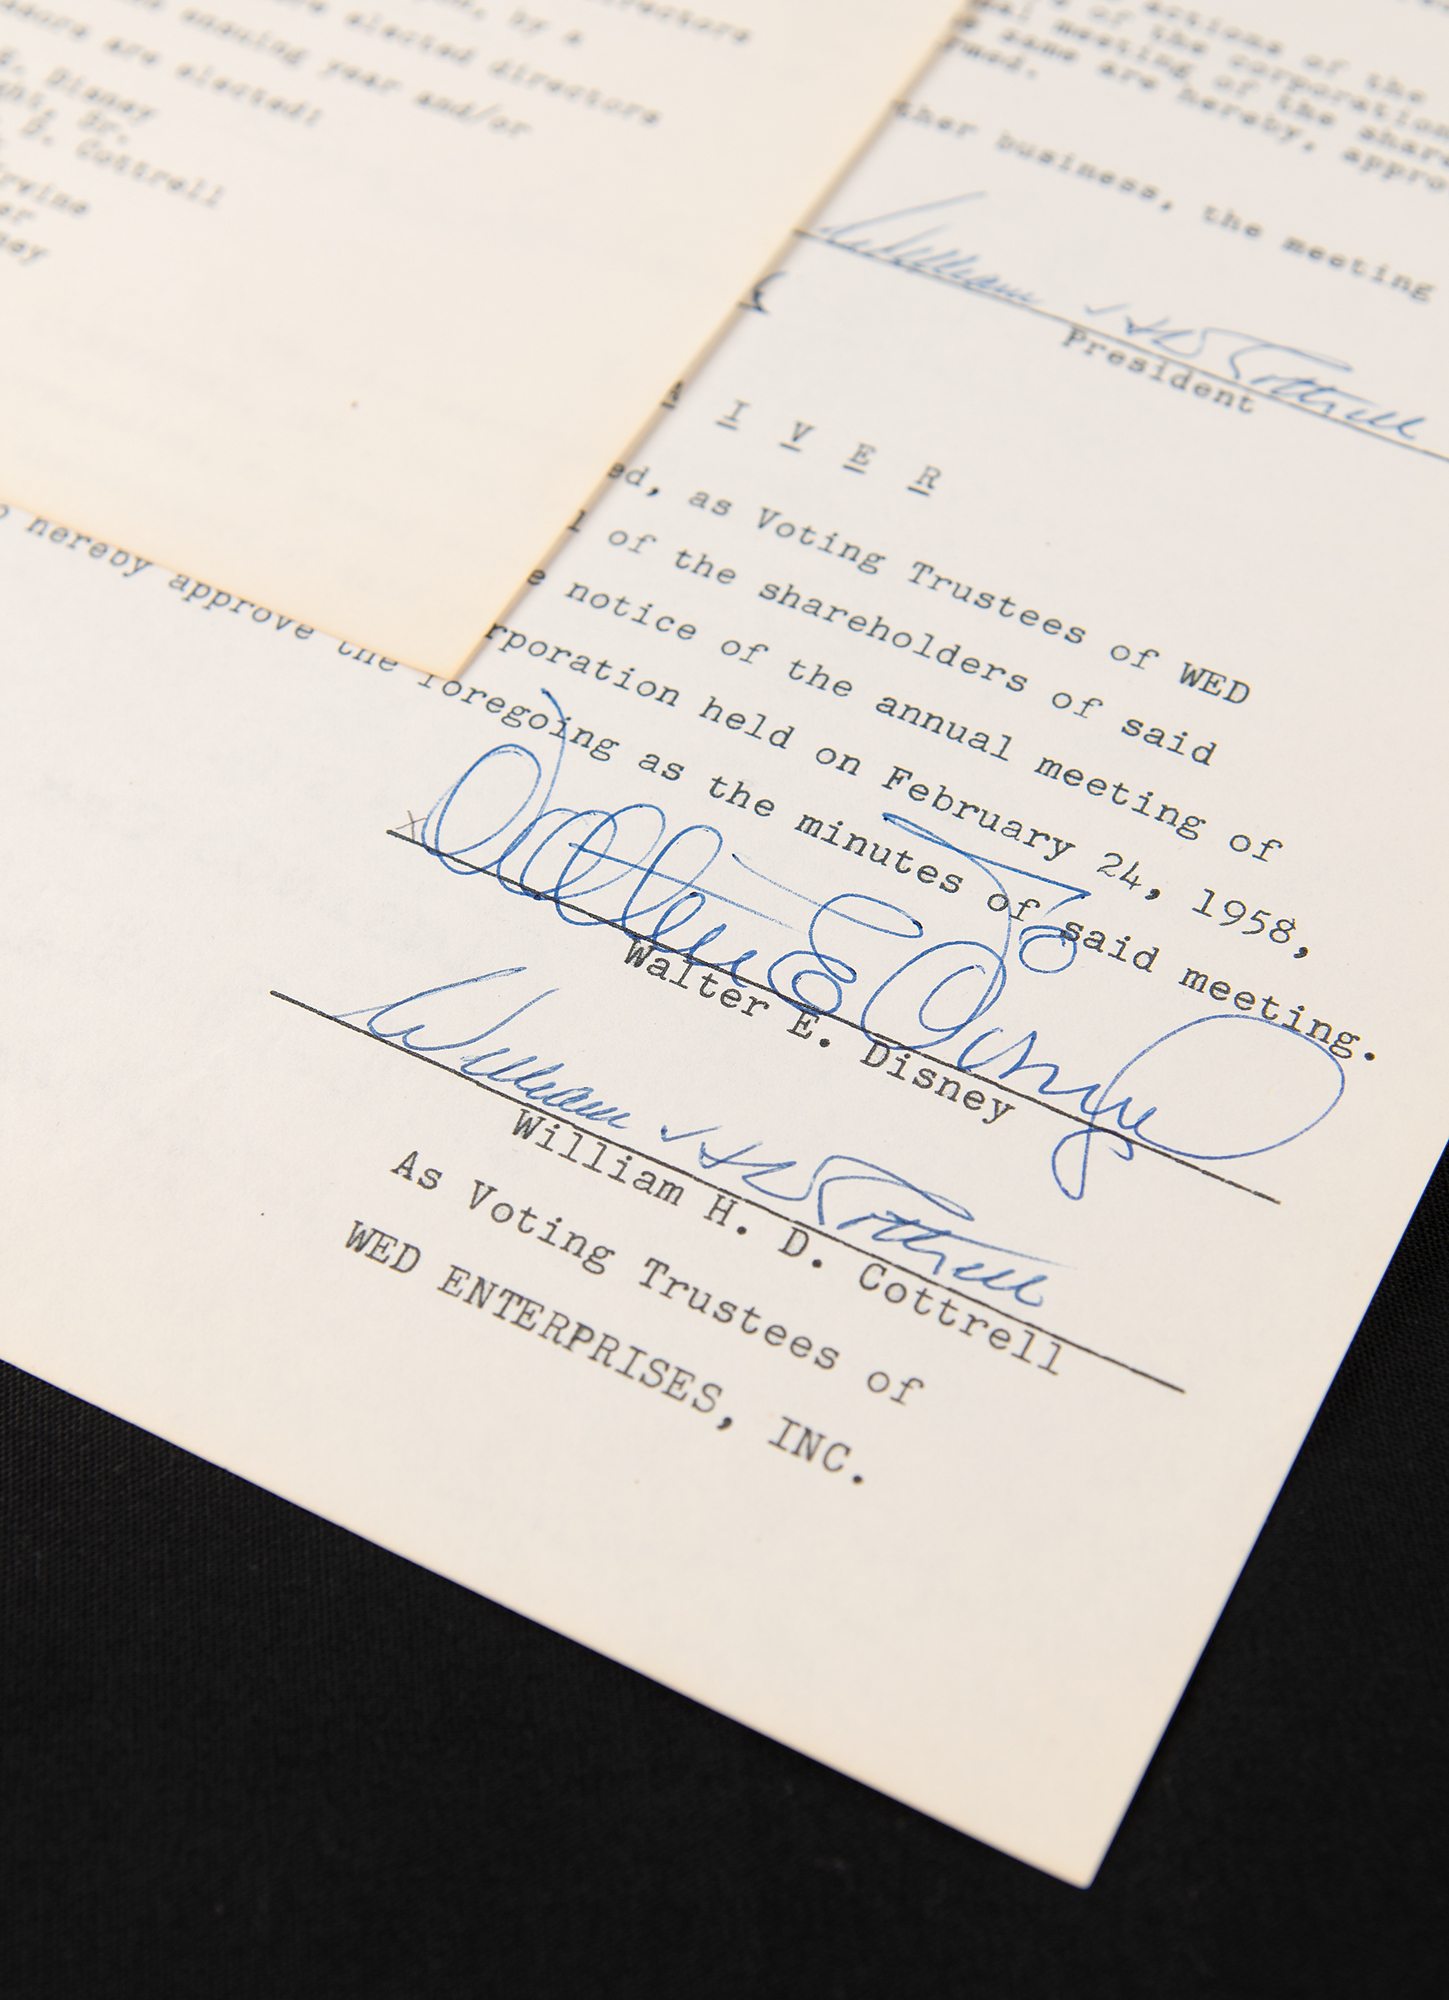 irectors
, by a
are elected directors
ensuing year and/or
are elected:
E. Disney
ht, Sr.
D. Cottrell
Irvine
er
ney
actions of the
of the corporation
meeting of the share
same are hereby, appro
rmed.
ther business, the meeting
William H D Cottrell
President
A I V E R
ed, as Voting Trustees of WED
l of the shareholders of said
e notice of the annual meeting of
rporation held on February 24, 1958,
hereby approve the foregoing as the minutes of said meeting.
x Walter E Disney
Walter E. Disney
William H D Cottrell
William H. D. Cottrell
As Voting Trustees of
WED ENTERPRISES, INC.